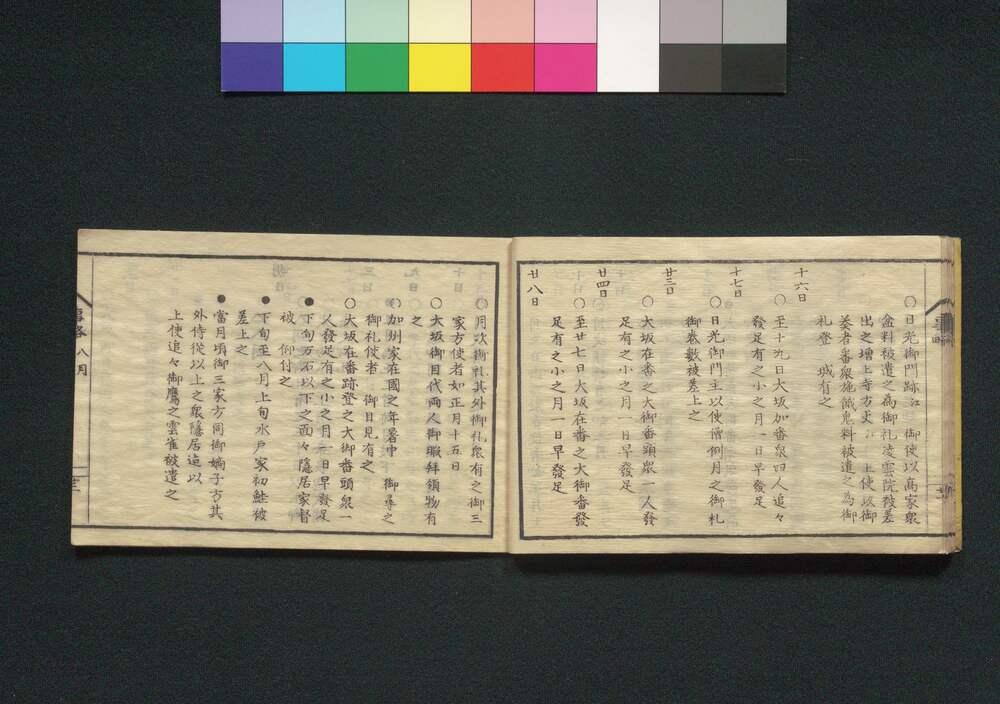 ○日光御門跡江 御使以高家衆
盆料被遣之為御礼凌雲院被差
出之増上寺方丈江 上使以御
奏者番衆施餓鬼料被遣之為御
礼登 城有之
十六日
○至十九日大坂加番衆四人追々
發足有之小之月一日早發足
十七日
○日光御門主以使僧例月之御札
御巻數被差上之
廿三日
○大坂在番之大御番頭衆一人發
足有之小之月一日早發足
廿四日
○至廿七日大坂在番之大御番發
足有之小之月一日早發足
廿八日
○月次御礼其外御礼衆有之御三
家方使者如正月十五日
○大坂御目代両人御暇拝領物有
之
○加州家在國之年暑中 御尋之
御礼使者 御目見有之
○大坂在番跡登之大御番頭衆一
人發足有之小之月一日早發足
●下旬万石以下之面々隠居家督
被 仰付之
●下旬至八月上旬水戸家初鮭被
差上之
●當月頃御三家方同御嫡子方其
外侍從以上之衆隠居迄以
上使追々御鷹之雲雀被遣之
八月